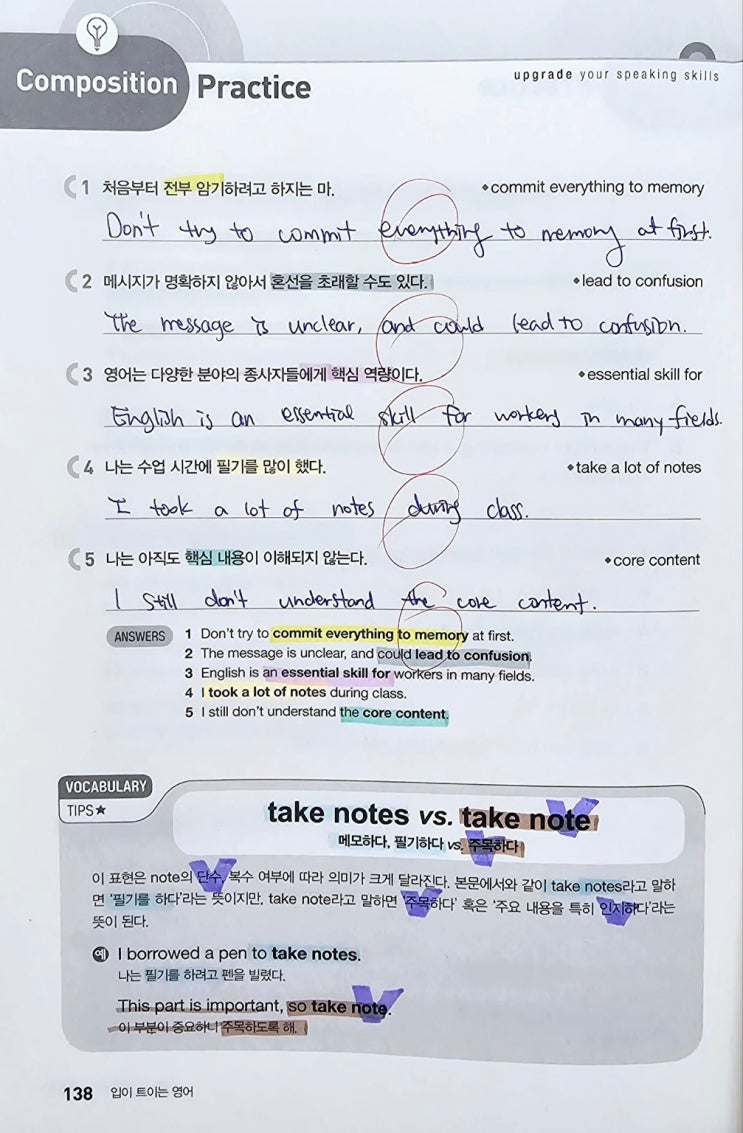 Composition Practice
upgrade your speaking skills
1 처음부터 전부 암기하려고 하지는 마.
◆commit everything to memory
Don't try to commit everything to memory at first.
2 메시지가 명확하지 않아서 혼선을 초래할 수도 있다.
◆lead to confusion
The message is unclear, and could lead to confusion.
3 영어는 다양한 분야의 종사자들에게 핵심 역량이다.
◆essential skill for
English is an essential skill for workers in many fields.
4 나는 수업 시간에 필기를 많이 했다.
◆take a lot of notes
I took a lot of notes during class.
5 나는 아직도 핵심 내용이 이해되지 않는다.
◆core content
I still don't understand the core content.
ANSWERS
1 Don't try to commit everything to memory at first.
2 The message is unclear, and could lead to confusion.
3 English is an essential skill for workers in many fields.
4 I took a lot of notes during class.
5 I still don't understand the core content.
VOCABULARY
TIPS★
take notes vs. take note
메모하다, 필기하다 vs. 주목하다
이 표현은 note의 단수, 복수 여부에 따라 의미가 크게 달라진다. 본문에서와 같이 take notes라고 말하
면 '필기를 하다'라는 뜻이지만, take note라고 말하면 '주목하다' 혹은 '주요 내용을 특히 인지하다'라는
뜻이 된다.
예 I borrowed a pen to take notes.
나는 필기를 하려고 펜을 빌렸다.
This part is important, so take note.
이 부분이 중요하니 주목하도록 해.
138 입이 트이는 영어